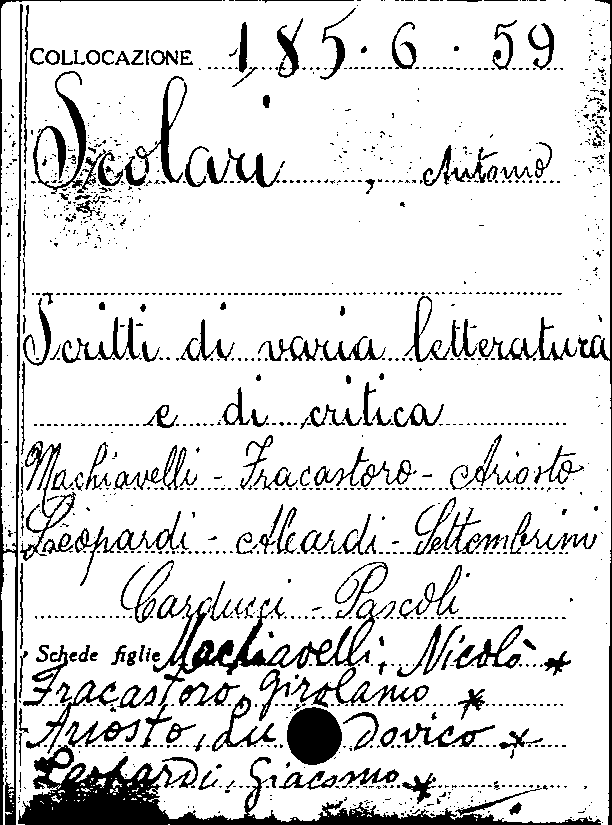 COLLOCAZIONE 185.6.59
Scolari, Antonio
Scritti di varia letteratura
e di critica
Machiavelli - Fracastoro - Ariosto
Leopardi - Aleardi - Settembrini
Carducci - Pascoli
Schede figlie Machiavelli, Nicolò *
Fracastoro, Girolamo *
Ariosto, Ludovico *
Leopardi, Giacomo *